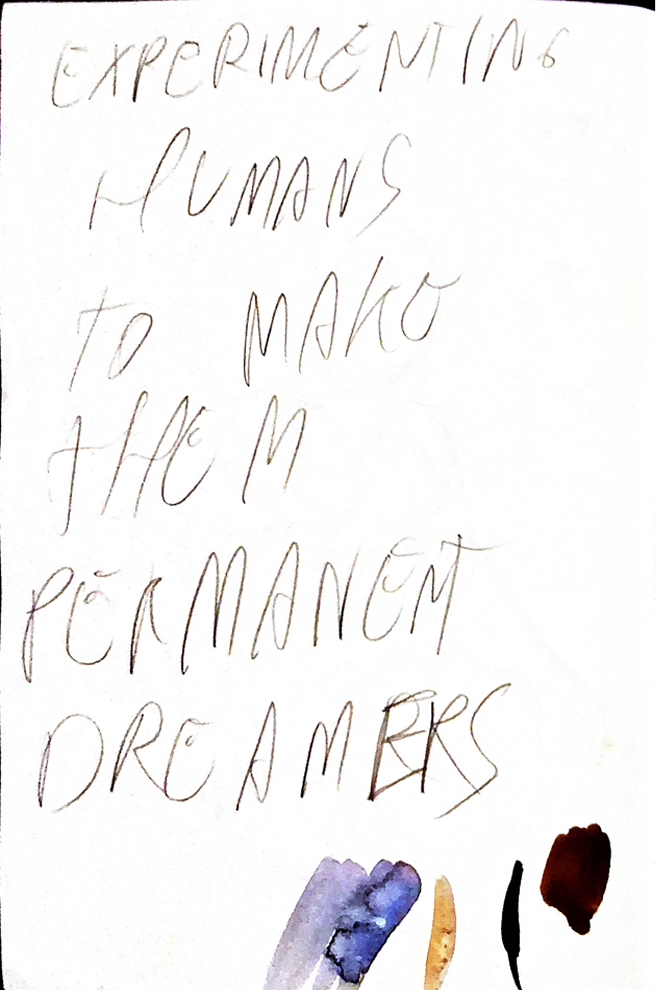 EXPERIMENTING
HUMANS
TO MAKE
THEM
PERMANENT
DREAMERS